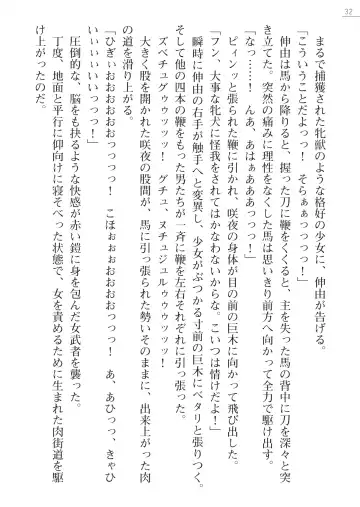 32
まるで捕獲された牝獣のような格好の少女に、伸由が告げる。
「こういうことだよっっ！　そらぁぁっっっっ！」
伸由は馬から降りると、握った刀に鞭をくくると、主を失った馬の背中に刀を深々と突
き立てた。突然の痛みに理性をなくした馬は思いきり前方へ向かって全力で駆け出す。
「なっ……！　んあ、あはぁぁあああっっっっ！」
ピィンッと張られた鞭に引かれ、咲夜の身体が目の前の巨木に向かって飛び出した。
「フン、大事な牝犬に怪我をされてはかなわないからな。こいつは情けだよ！」
瞬時に伸由の右手が触手へと突異し、少女がぶつかる寸前の巨木にベタリと張りつく。
そして他の四本の鞭をもった男たちが一斉に鞭を左右それぞれに引っ張った。
ズベチュグチュゥゥゥッッッ！　グチュ、ヌチュジュルゥゥゥゥッッッ！
大きく股を開かれた咲夜の股間が、馬に引っ張られた勢いそのままに、出来上がった肉
の道を滑り上がる。
「ひぎぃおおおおおっっっっ！　こほぉぉぉおおおおっっっっ！　あ、あひっっ、きゃひ
いぃぃぃいいっっっっ！」
圧倒的な、脳をも抉るような快感が赤い鎧に身を包んだ女武者を襲った。
丁度、地面と平行に仰向けに寝そべった状態で、女を責めるために生まれた肉街道を駆
け上がったのだ。